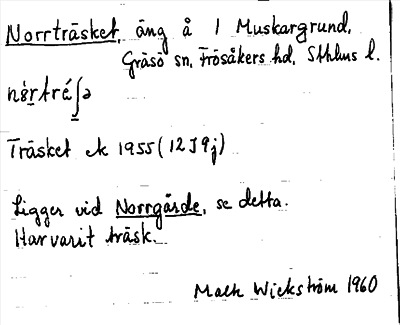 Norrträsket, äng å 1 Muskargrund,
Gräsö sn, Frösåkers hd, Sthlms l.
Träsket ek 1955 (12J9j)
Ligger vid Norrgärde, se detta.
Har varit träsk.
Wickström 1960